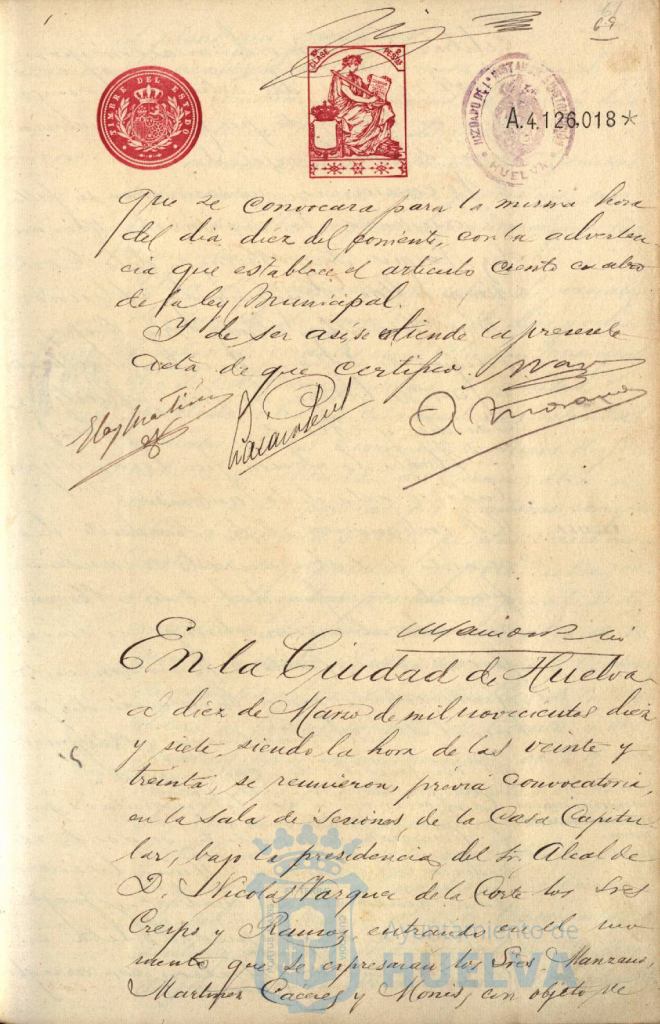 69
TIMBRE DEL ESTADO
CLASE PESETAS
HUELVA
A.4.126,018*
que se convocara para la misma hora
del dia diez del corriente, con la adverten
cia que establece el articulo ciento cuatro
de la ley Municipal.
Y de ser asi se estiende la presente
acta de que certifico.
Eloy Martin
A. Moreno
En la Ciudad de Huelva
á diez de Marzo de mil novecientos diez
y siete, siendo la hora de las veinte y
treinta, se reunieron, previa convocatoria,
en la sala de sesiones, de la Casa Capitu-
lar, bajo la presidencia, del Sr. Alcalde
D. Nicolas Vazquez de la Corte los Sres
Crespo y Ramos, entrando en el mo
mento que se espresaran los Sres. Manzano,
Martinez Caceres y Monis, con objeto de
Ayuntamiento de
HUELVA